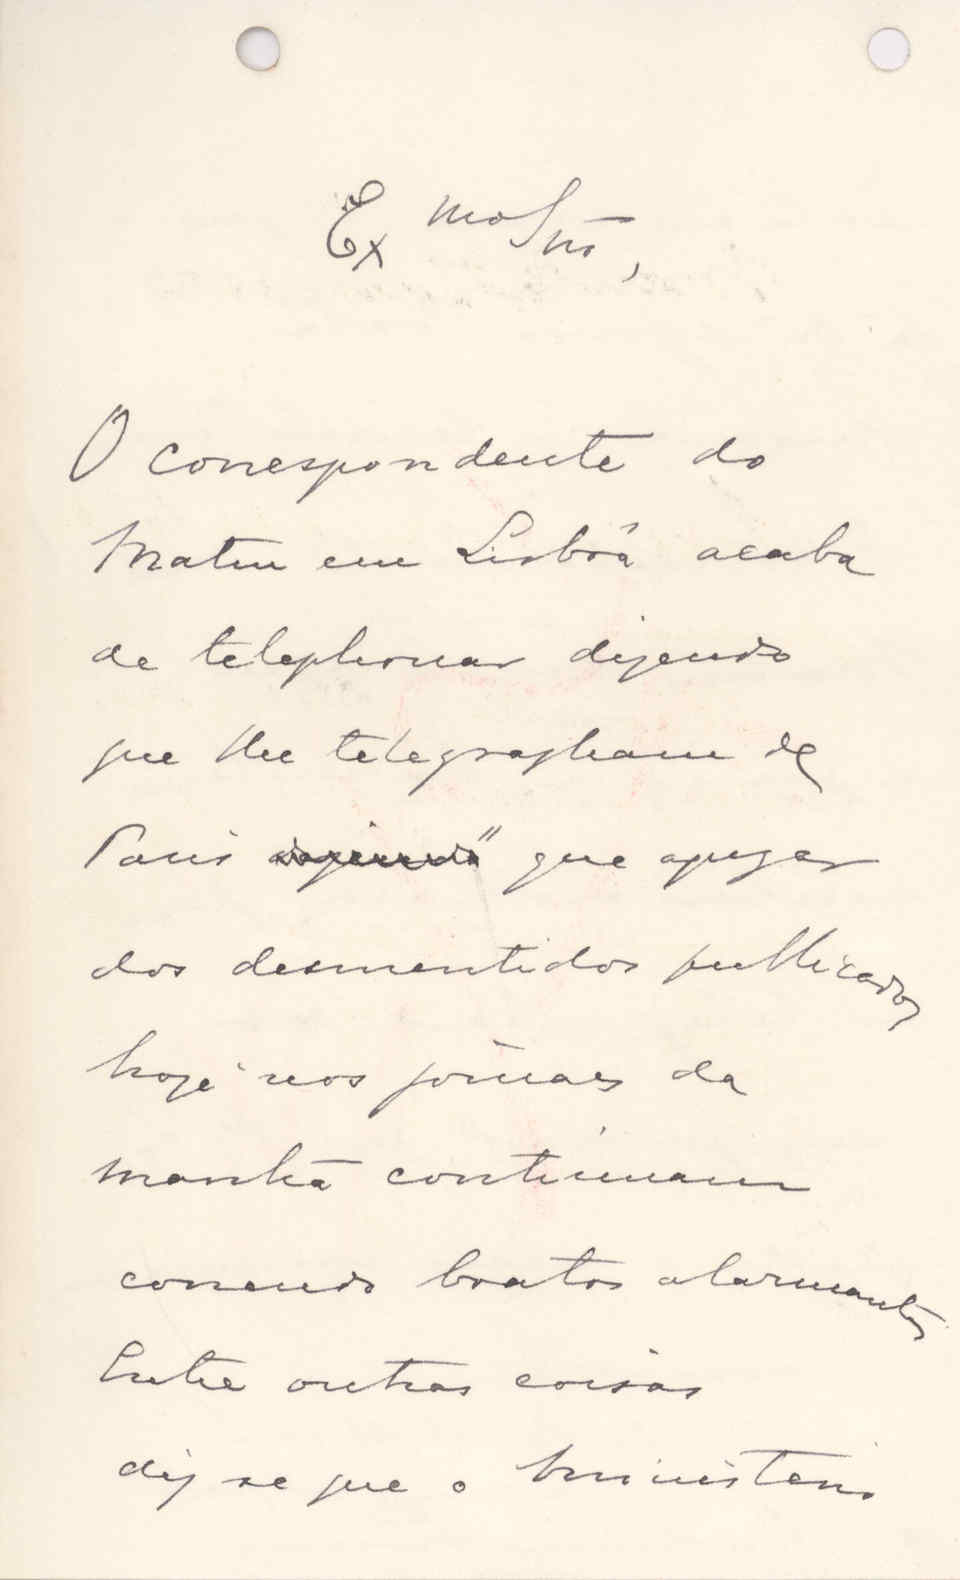 Exmo Snr,
O correspondente do
Matin em Lisbôa acaba
de telephonar dizendo
que lhe telegrapham de
Paris " que apezar
dos desmentidos publicados
hoje nos jornaes da
manhã continuam
correndo boatos alarmantes
Entre outras coisas
diz se que o ministerio